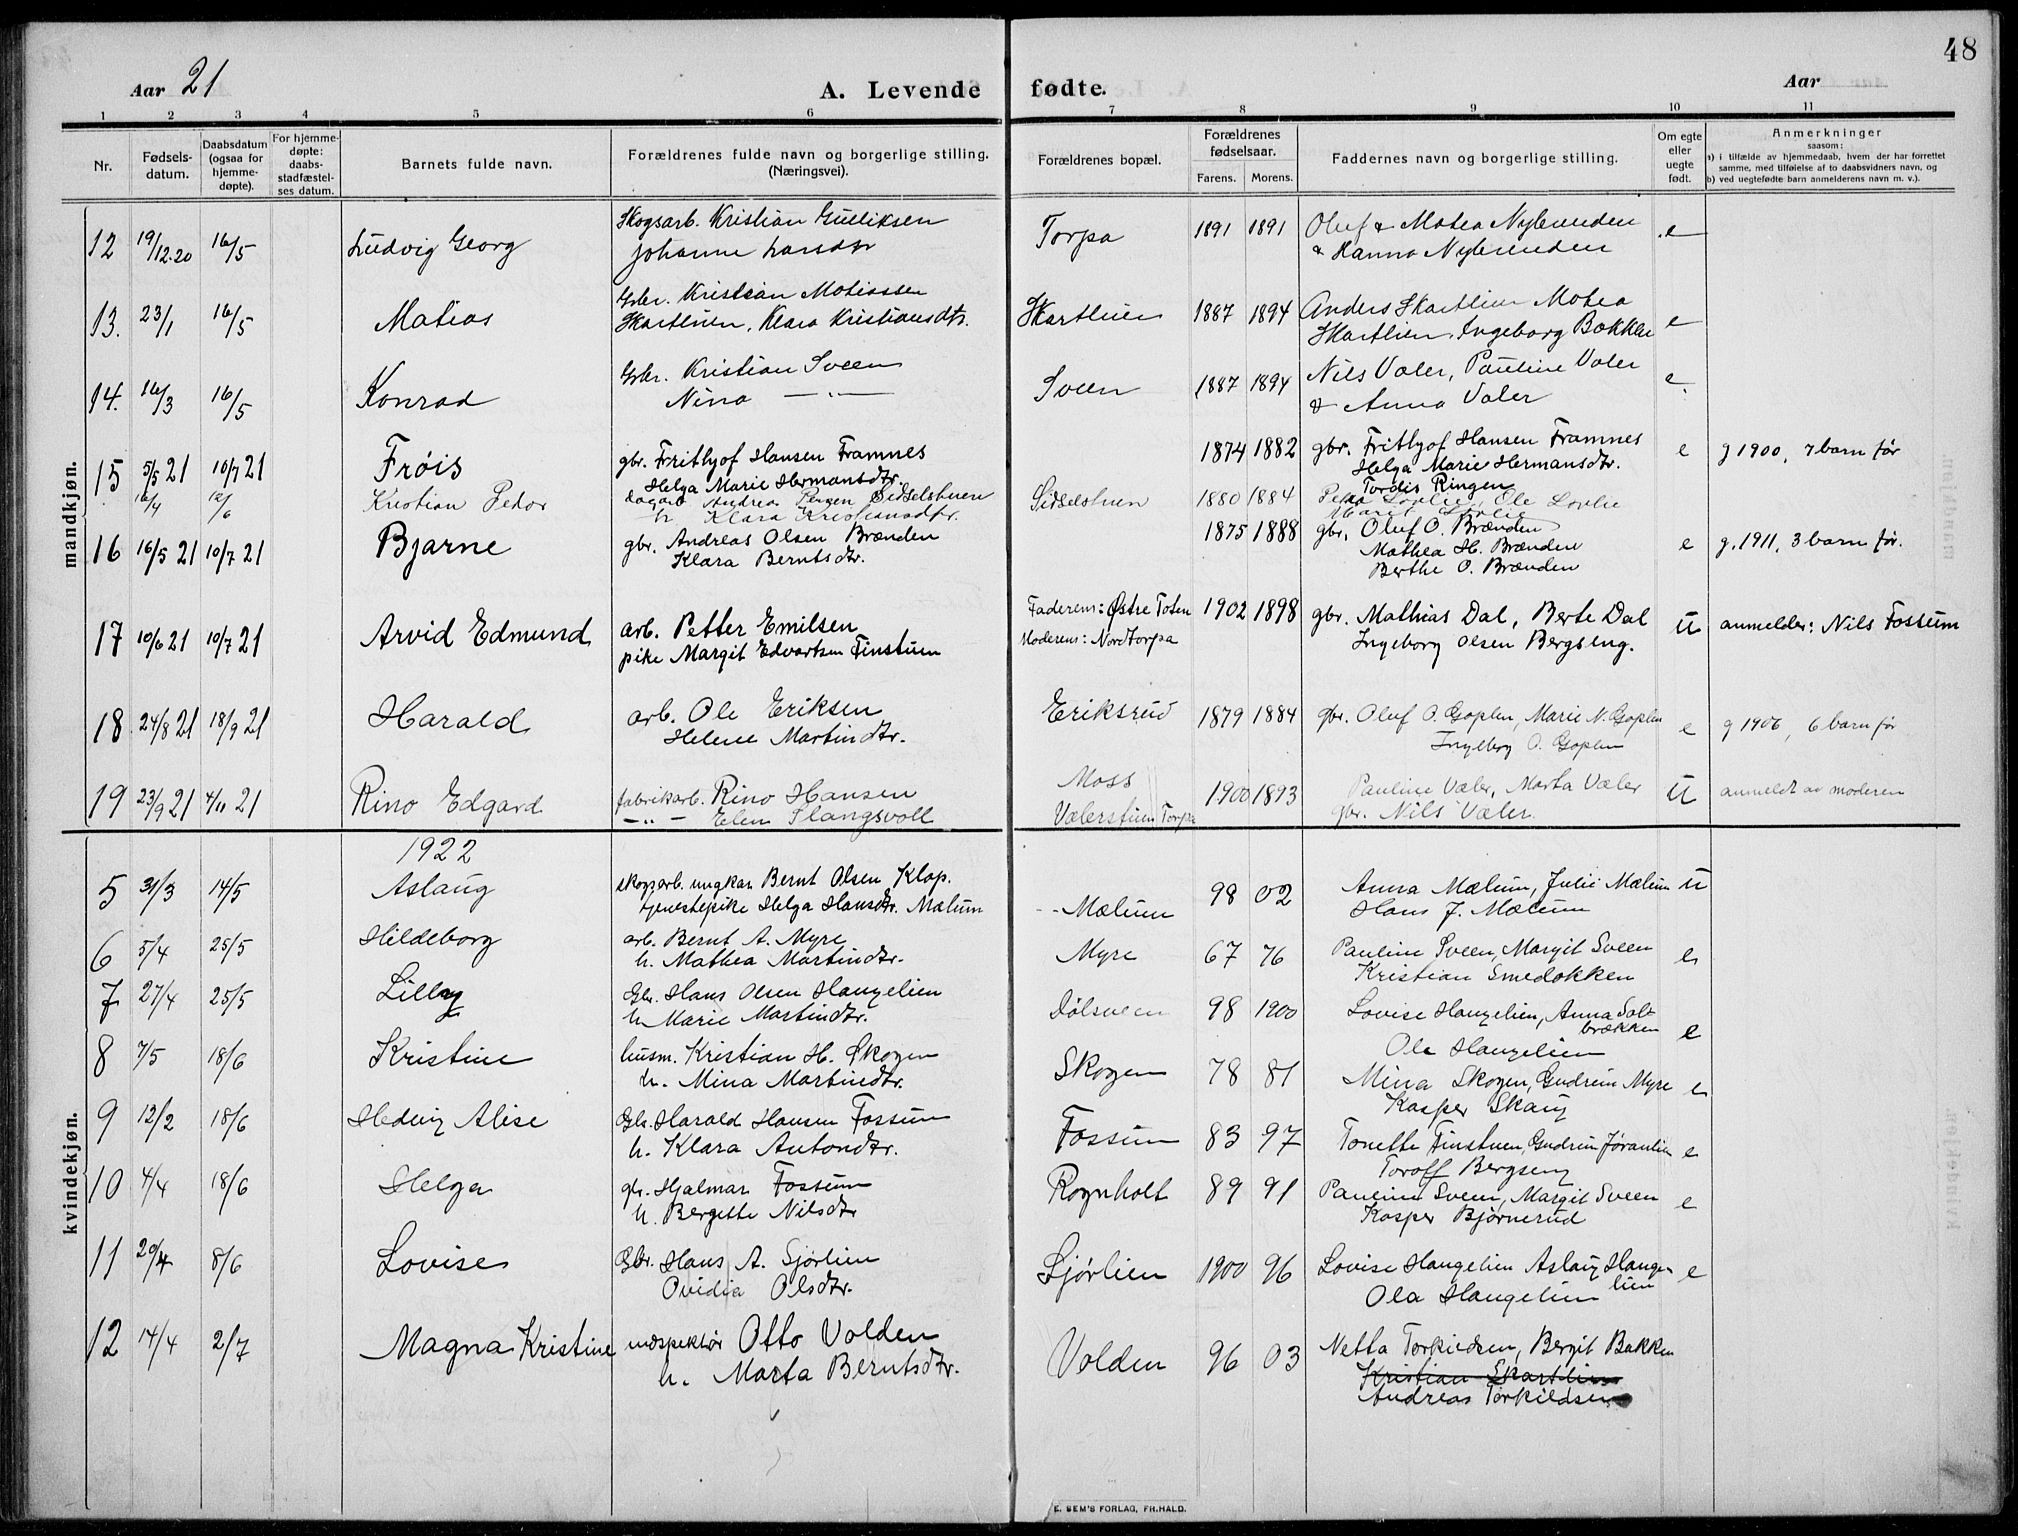 48
Aar 21
A. Levende fødte.
Aar
1 2 3 4 5 6 7 8 9 10 11
Nr.
Fødsels-
datum.
Daabsdatum
(ogsaa for
hjemme-
døpte).
For hjemme-
døpte:
daabs-
stadfæstel-
ses datum.
Barnets fulde navn.
Forældrenes fulde navn og borgerlige stilling.
(Næringsvei).
Forældrenes bopæl.
Forældrenes
fødselsaar.
Farens. Morens.
Faddernes navn og borgerlige stilling.
Om egte
eller
uegte
født.
Anmerkninger
saasom:
a) i tilfælde av hjemmedaab, hvem der har forrettet
samme, med tilføielse af to daabsvidners navn, og
b) ved uegtefødte barn anmelderens navn m. v.).
mandkjøn.
12 19/12.20 16/5 Ludvig Georg Skogsarb. Kristian Gulliksen Torpa 1891 1891 Oluf & Matea Nybrenden e
Johanne Larsdtr & Hanna Nybrenden
13. 23/1 16/5 Matias Gbr. Kristian Matiassen Skartlien 1887 1894 Anders Skartlien Matea e
Skartlien, Klara Kristiansdtr. Skartlien, Ingeborg Bakken
14. 16/3 16/5 Konrad Gbr. Kristian Sveen Sveen 1887 1894 Nils Valer, Pauline Valer e.
Nina — " — & Anna Valer
15 5/5 21 10/7 21 Frøis gbr. Frithjof Hansen Framnes 1874 1882 gbr. Frithjof Hansen Framnes e g 1900, 7 barn før
Helga Marie Hermansdtr. Helga Marie Hermansdtr.
Tordis Ringen
16/4 12/6 Kristian Peder dagarb Andreas Sidselstuen Sidselstuen 1880 1884 Petra Lovlie, Ole Lovlie
h Klara Kristiansdtr. Marit Lovlie
16 16/5 21 10/7 21 Bjarne gbr. Andreas Olsen Brænden 1875 1888 gbr. Oluf O. Brænden e g. 1911, 3 barn før.
Klara Berntsdtr. Mathea H. Brænden
Berthe O. Brænden
17 10/6 21 10/7 21 Arvid Edmund arb. Petter Emilsen Faderens: Østre Toten 1902 1898 gbr. Mathias Dal, Berte Dal U anmelder: Nils Fossum
pike Margit Edvartsen Finstuen Moderens: Nordtorpa Ingeborg Olsen Bergseng.
18 24/8 21 18/9 21 Harald arb. Ole Eriksen Eriksrud 1879 1884 gbr. Oluf O. Goplen, Marie N. Goplen e g 1906, 6 barn før
Helene Martindtr. Ingeborg O. Goplen
19 23/9 21 4/11 21 Rino Edgard fabrikarb. Rino Hansen Moss 1900 1893 Pauline Væler, Marta Væler U anmeldt av moderen
— " — Elen Slangsvoll Vælerstuen Torpa gbr. Nils Væler.
kvindekjøn.
1922
5 31/3 14/5 Aslaug skogsarb. ungkar Bernt Olsen Klop. Mælum 98 02 Anna Mælum, Julie Mælum U
tjenestepike Helga Hansdtr. Mælum Hans J. Mælum
6 5/4 25/5 Hildeborg arb. Bernt A. Myre Myre 67 76 Pauline Sveen, Margit Sveen e
h. Mathea Martindtr. Kristian Smedökken
7 27/4 25/5 Lilly Gbr. Hans Olsen Hangelien Dølsveen 98 1900 Lovise Hangelien, Anna Sol- e
h Marie Martindtr. brækken
Ole Hangelien
8 7/5 18/6 Kristine husm. Kristian H. Skogen Skogen 78 81 Mina Skogen, Gudrun Myre e
h. Mina Martindtr. Kasper Skaug
9 12/2 18/6 Hedvig Alise Gbr. Harald Hansen Fossum Fossum 83 97 Tonette Finstuen, Gudrun Jøranlien e
h. Klara Antondtr. Toroff Bergseng
10 4/4 18/6 Helga gbr. Hjalmar Fossum Rognholt 89 91 Pauline Sveen, Margit Sveen e
h. Bergette Nilsdtr Kasper Bjørnerud
11 20/4 8/6 Lovise Gbr. Hans A. Sjørlien Sjørlien 1900 96 Lovise Hangelien Aslaug Hange- e
Ovidia Olsdtr. lien
Ola Hangelien
12 14/4 2/7 Magna Kristine indspektør Otto Volden Volden 96 03 Netta Torkildsen, Bergit Bakken
h. Marta Berntsdtr. Kristian Skartlien
Andreas Torkildsen
E. SEM'S FORLAG, FR.HALD.